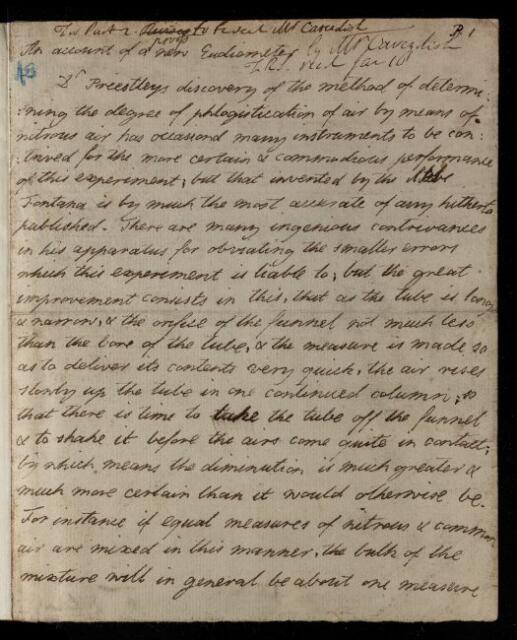 For Part 2. to be read Mr Cavendish
P. 1
An account of a new Eudiometer by Mr Cavendish
F.R.S. read Jan 16
Dr Priestleys discovery of the method of determi
:ning the degree of phlogistication of air by means of
nitrous air has occasiond many instruments to be con:
:trived for the more certain & commodious performance
of this experiment; but that invented by the Abbe
Fontana is by much the most accurate of any hitherto
published. There are many ingenious contrivances
in his apparatus for obviating the smaller errors
which this experiment is liable to; but the great
improvement consists in this, that as the tube is long
& narrow, & the orifice of the funnel not much less
than the bore of the tube, & the measure is made so
as to deliver its contents very quick, the air rises
slowly up the tube in one continued column; so
that there is time to take the tube off the funnel
& to shake it before the airs come quite in contact;
by which means the diminution is much greater &
much more certain than it would otherwise be.
For instance if equal measures of nitrous & common
air are mixed in this manner, the bulk of the
mixture will in general be about one measure